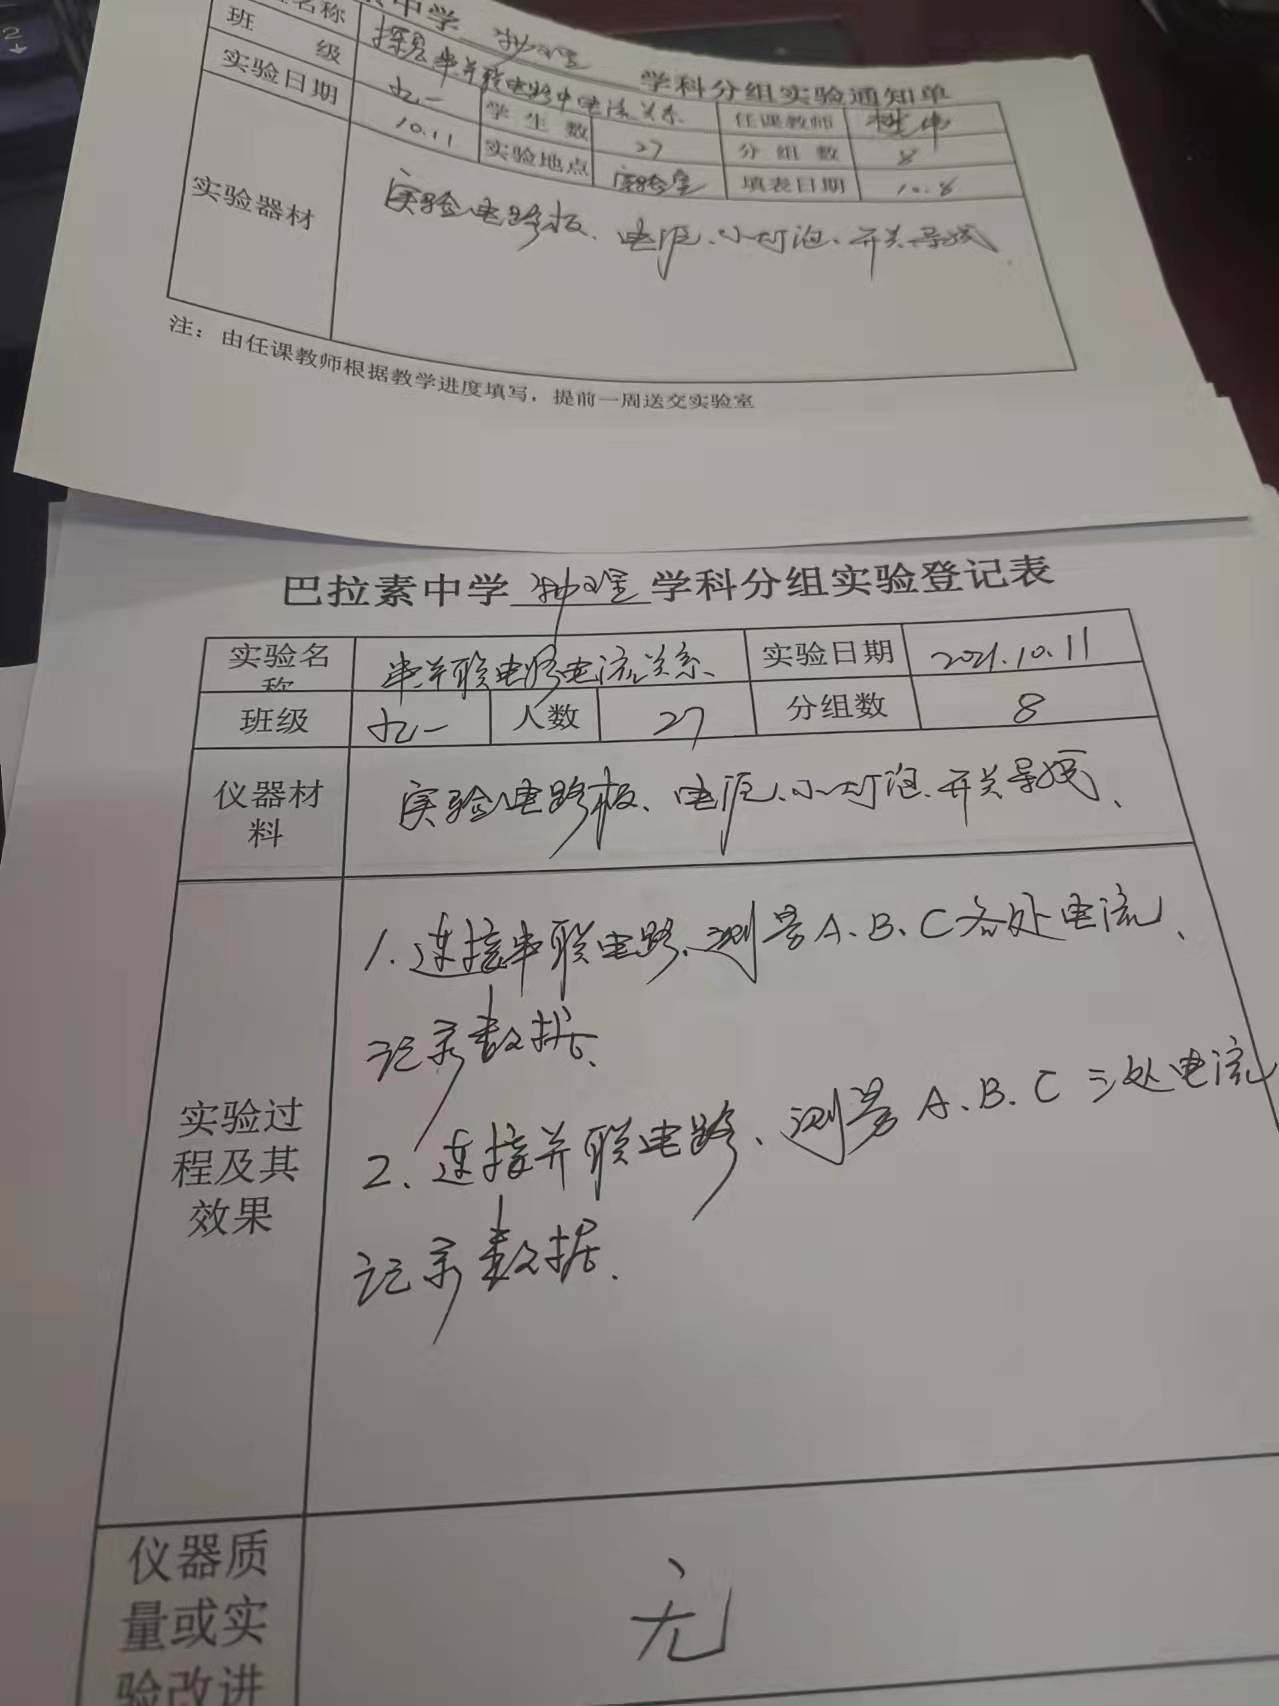 中学 物理 学科分组实验通知单
名称 探究串并联电路中电流关系 任课教师
班 级 九一 学生数 27 分组数 8
实验日期 10.11 实验地点 实验室 填表日期 10.8
实验器材 实验电路板、电源、小灯泡、开关导线
注：由任课教师根据教学进度填写，提前一周送交实验室
巴拉素中学 物理 学科分组实验登记表
实验名称 串并联电路电流关系、 实验日期 2021.10.11
班级 九一 人数 27 分组数 8
仪器材料 实验电路板、电源、小灯泡、开关导线、
实验过程及其效果
1、连接串联电路、测量A、B、C各处电流、
记录数据、
2、连接并联电路、测量A、B、C三处电流
记录数据、
仪器质量或实验改进 无